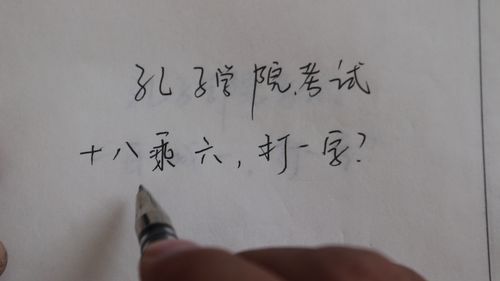 孔子学院考试
十八乘六，打一字？